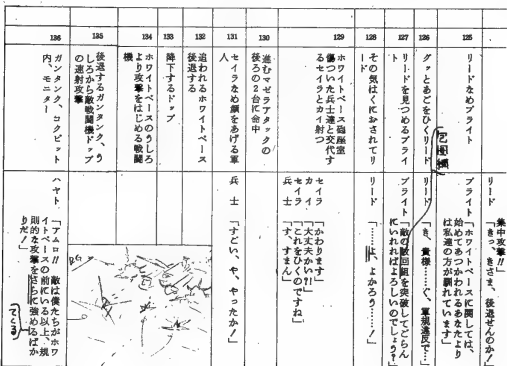 集中攻撃!!
リード「きっ、きさま、後退せんのか!」
125
リードなめブライト
ブライト「ホワイトベースに関しては、
始めてあつかわれるあなたより
は私達の方が馴れています」
126
グッとあごをひくリード
リード「き、貴様……く、軍規違反で…」
127
リードを見つめるブライ
ト
ブライト「敵の散回線を突破してごらん
にいれればよろしいのでしょう?」
128
その気はくにおされてリ
ード
リード「……よ、よかろう……!」
129
ホワイトベース砲座室
傷ついた兵士達と交代す
るセイラとカイ射つ
セイラ「かわります」
カイ「大丈夫かい?!」
セイラ「これをひくのですね」
兵士「す、すまん」
130
進むマゼラアタックの
後ろの2台に命中
131
セイラなめ顔をあげる軍
人
兵士「すごい、や、やったか!」
132
追われるホワイトベース
後退する
133
降下するドップ
134
ホワイトベースのうしろ
より攻撃をはじめる戦闘
機
135
後退するガンタンク、う
しろから敵戦闘機ドップ
の連射攻撃
136
ガンタンク、コクピット
内、モニター
ハヤト「アムロ!!敵は僕たちがホワ
イトベースの前にいる以上、規
則的な攻撃をさらに強めるばか
りだ!」
てくる
BG